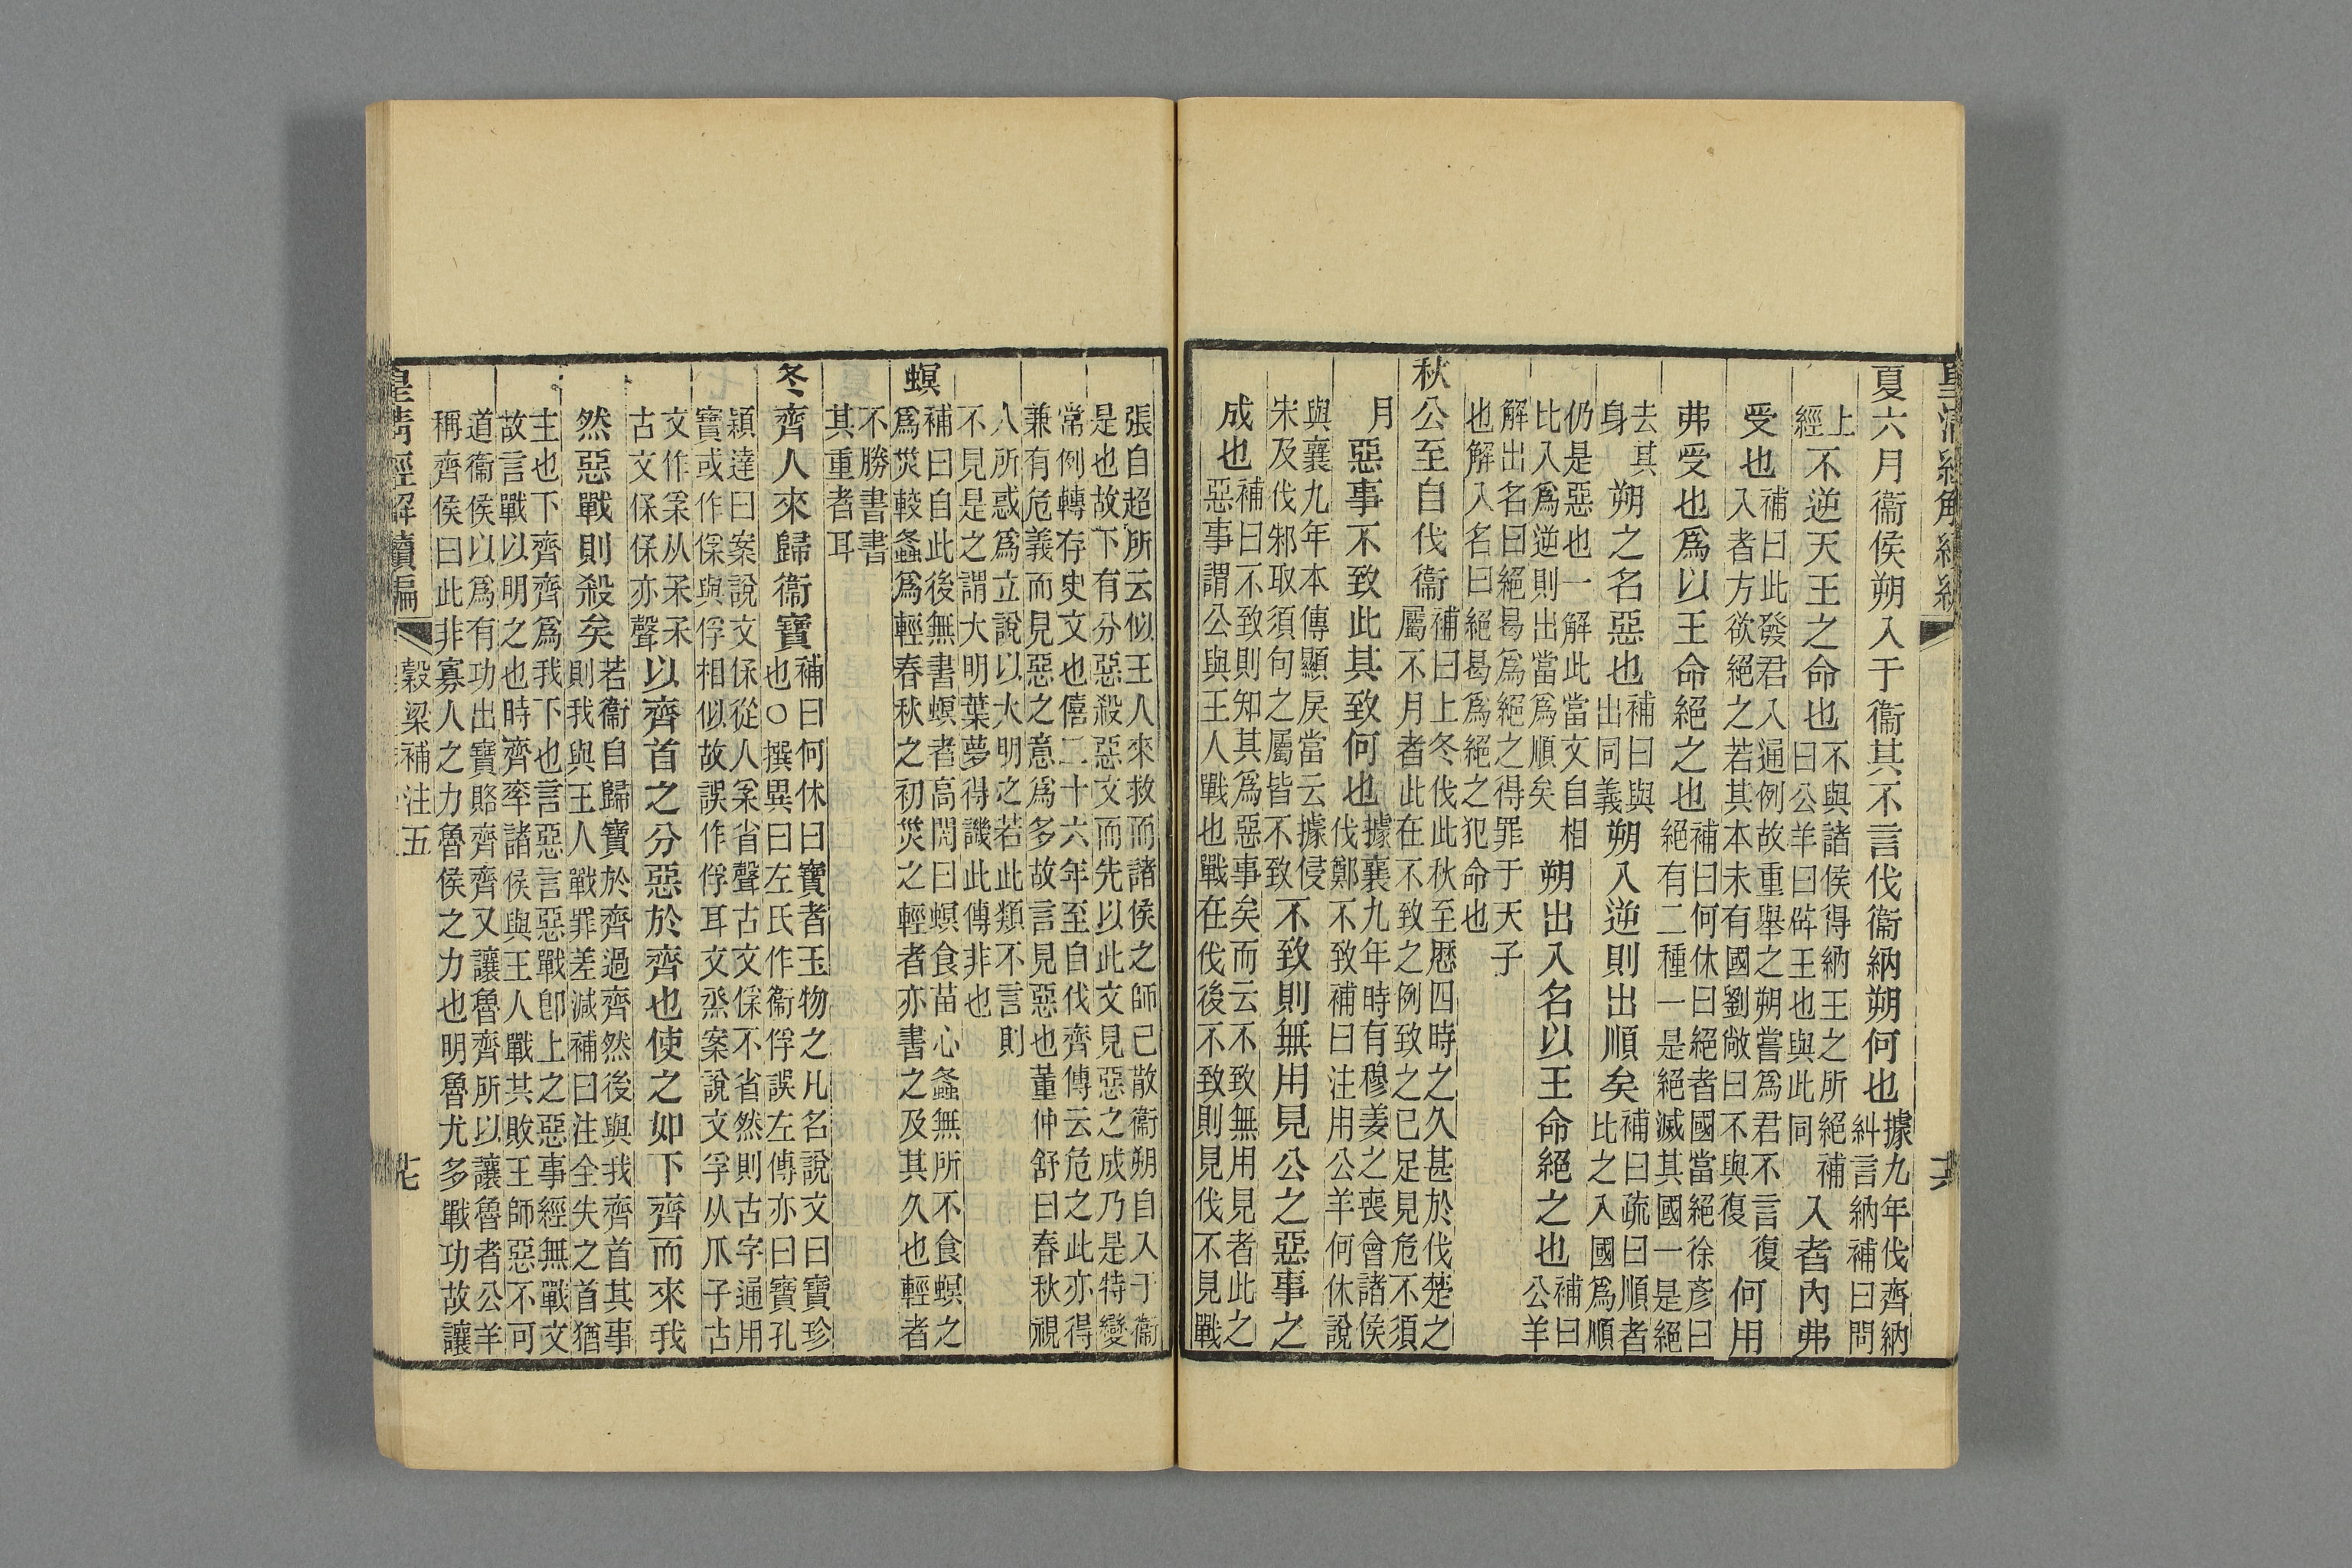 夏六月衞侯朔入于衞其不言伐衞納朔何也據九年伐齊納
糾言納補曰問
上
經不逆天王之命也不與諸侯得納王之所絕補
曰公羊曰辟王也與此同入者內弗
受也補曰此發君入通例故重舉之朔嘗爲君不言復
入者方欲絕之若其本未有國劉敞曰不與復何用
弗受也爲以王命絕之也補曰何休曰絕者國當絕徐彥曰
絕有二種一是絕滅其國一是絕
去其
身朔之名惡也補曰與
出同義朔入逆則出順矣補曰疏曰順者
比之入國爲順
仍是惡也一解此當文自相
比入爲逆則出當爲順矣朔出入名以王命絕之也補曰
公羊
解出名曰絕曷爲絕之得罪于天子
也解入名曰絕曷爲絕之犯命也
秋公至自伐衞補曰上冬伐此秋至歷四時之久甚於伐楚之
屬不月者此在不致之例致之已足見危不須
月惡事不致此其致何也據襄九年時有穆姜之喪會諸侯
伐鄭不致補曰注用公羊何休說
與襄九年本傳顯戾當云據侵
宋及伐邾取須句之屬皆不致不致則無用見公之惡事之
成也補曰不致則知其爲惡事矣而云不致無用見者此之
惡事謂公與王人戰也戰在伐後不致則見伐不見戰
張自超所云似王人來救而諸侯之師已散衞朔自入于衞
是也故下有分惡殺惡文而先以此文見惡之成乃是特變
常例轉存史文也僖二十六年至自伐齊傳云危之此亦得
兼有危義而見惡之意爲多故言見惡也董仲舒曰春秋視
人所惑爲立說以大明之若此類不言則
不見是之謂大明葉夢得譏此傳非也
螟補曰自此後無書螟者高閌曰螟食苗心螽無所不食螟之
爲災較螽爲輕春秋之初災之輕者亦書之及其久也輕者
不勝書書
其重者耳
冬齊人來歸衞寶補曰何休曰寶者玉物之凡名說文曰寶珍
也○撰異曰左氏作衞俘誤左傳亦曰寶孔
穎達曰案說文保從人省聲古文保不省然則古字通用
寶或作保與俘相似故誤作俘耳文烝案說文孚从爪子古
文作从
古文保保亦聲以齊首之分惡於齊也使之如下齊而來我
然惡戰則殺矣若衞自歸寶於齊過齊然後與我齊首其事
則我與王人戰罪差減補曰注全失之首猶
主也下齊齊爲我下也言惡言惡戰卽上之惡事經無戰文
故言戰以明之也時齊率諸侯與王人戰其敗王師惡不可
道衞侯以爲有功出寶賂齊齊又讓魯齊所以讓魯者公羊
稱齊侯曰此非寡人之力魯侯之力也明魯尤多戰功故讓
皇清經解續編 穀梁補注五